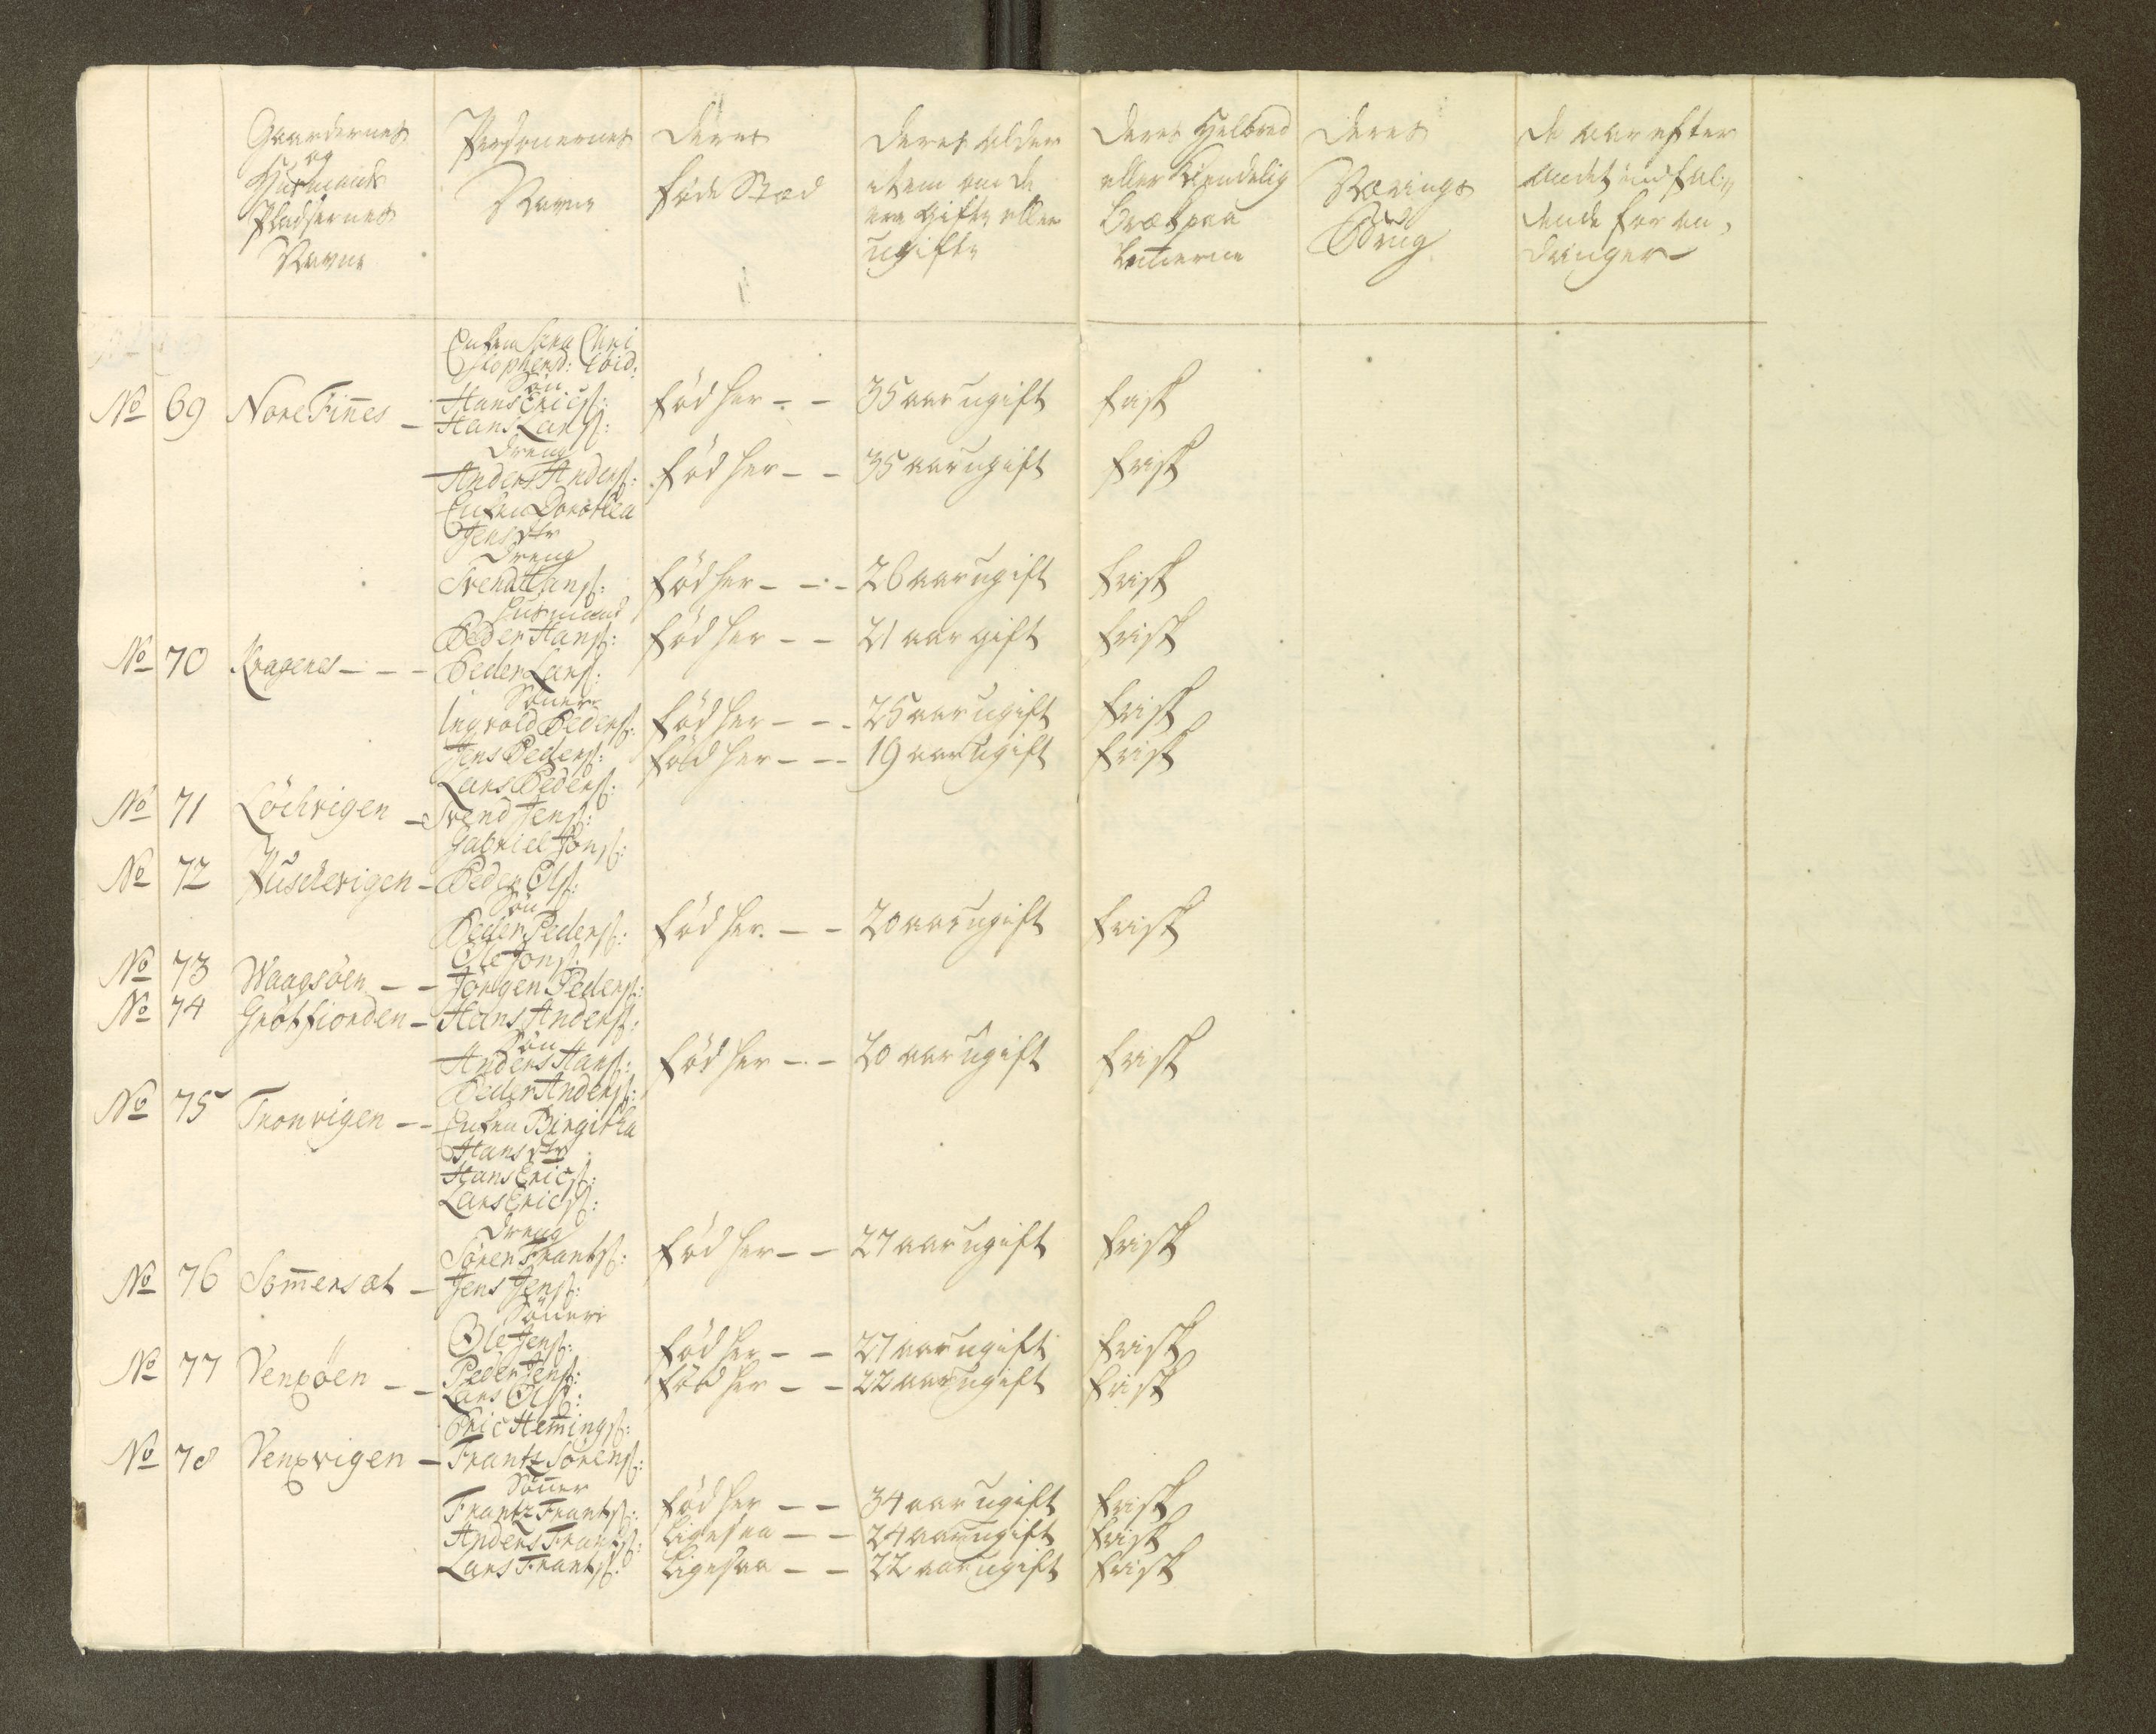 Gaardernes
og
Huusmands
Pladsernes
Navne
Personernes
Navne
Deres
føde Stæd
Deres alder
item om de
ere gifte eller
ugifte
Deres Helbred
eller kiendelig
Bræk paa
Lemmerne
Deres
Nærings
Brug
De aar efter
andet indfal„
dende foran„
dringer
Enken Chri
stophersd: ibid:
Søn
Hans Erics: fød her - - 35 aar ugift fast
No 69 NoreFin̄es - Hans Lars:
Dreng
Anders Anders: fød her - - 35 aar ugift frisk
Enken Dorothea
Jensdtr
Dreng
Svend Hans: fød her - - - 26 aar ugift frisk
Huusmand
Peder Hans: fød her - - 21 aar gift frisk
No 70 Kragenes - - - Peder Lars:
Sønner
Ingvold Peders: fød her - - - 25 aar ugift frisk
Jens Peders: fød her - - - 19 aar ugift frisk
Lars Peders:
No 71 Löchvigen - Svend Jens:
Gabriel Jons:
No 72 Puschevigen - Peder Ols:
Søn
Peder Peders: fød her. - - 20 aar ugift frisk
Ole Jons:
No 73 Waagsöen - - Jörgen Peders:
No 74 Gröt fiorden - Hans Anders:
Søn
Anders Hans: fød her - - 20 aar ugift frisk
Peder Anders:
No 75 Tronvigen - - Enken Birgitha
Hansdtr
Hans Erics:
Lars Erics:
Dreng
Sören Frants: fød her - - 27 aar ugift frisk
No 76 Som̄ersæt - Jens Jens:
Sønner
Ole Jens: fød her - - 27 aar ugift frisk
Peder Jens: fød her - - 22 aar ugift frisk
No 77 Vengöen - - Lars Ols:
Eric Hem̄ings:
No 78 Vengvigen - Frantz Sörens:
Sønner
Frantz Frants: fød her - - 34 aar ugift frisk
Anders Frants: Ligesaa - - 24 aar ugift frisk
Lars Frants: Ligesaa - - 22 aar ugift frisk